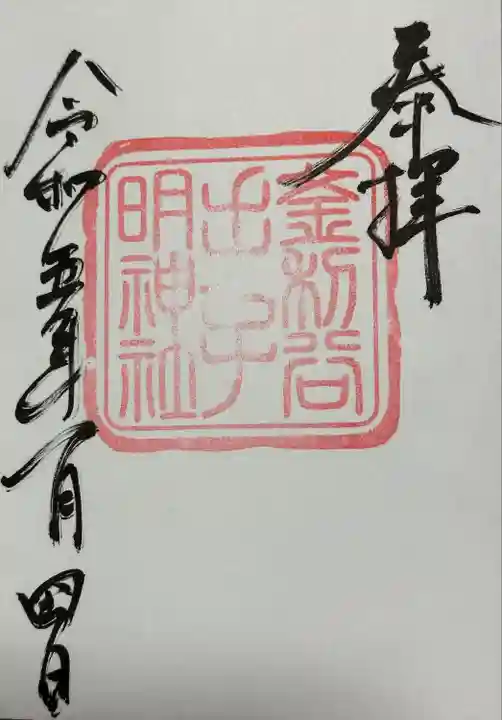 奉拝
金刀谷
出世子
明神社
令和五年一月四日